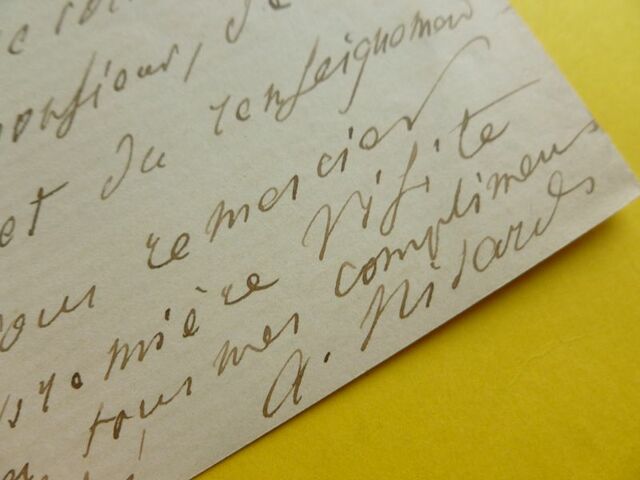 monsieur, de
et du renseignement
vous remercier
première visite
tous mes compliments
a. Nisard